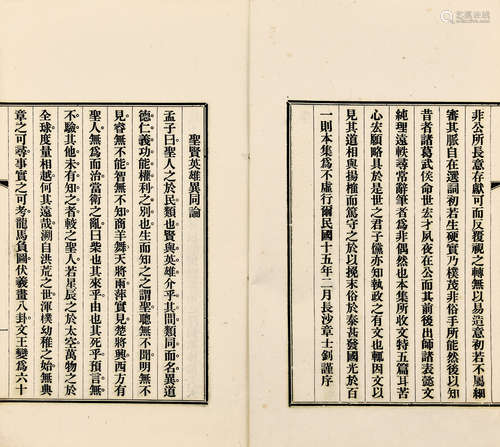 非公所長意存獻可而反覆視之轉無以易造意初若不屬細
審其脈自在選詞初若生硬實乃樸茂非俗手所能然後以知
昔者諸葛武侯命世宏才夙夜在公而其前後出師諸表懿文
純理遠軼尋常辭筆者為非偶然也本集所收文特五篇耳苦
心宏願略具於是世之君子讀亦知執政之有文也輒因文以
見其道相與揚搉而篤守之於以挽末俗於泰甚發國光於百
一則本集為不虛行爾民國十五年二月長沙章士釗謹序
聖賢英雄異同論
孟子曰聖人之於民類也賢與英雄介乎其間類同而名異道
德仁義功能權利之別也生而知之之謂聖聰無不聞明無不
見睿無不能智無不知商羊舞天將雨萍實見楚將興西方有
聖人無為而治當衛之亂曰柴也其來乎由也其死乎預言無
不驗其他未有知之者較之聖人若星辰之於太空萬物之於
全球度量相越何其遠哉溯自洪荒之世渾樸幼稚之始無典
章之可尋事實之可考龍馬負圖伏羲畫八卦文王變為六十